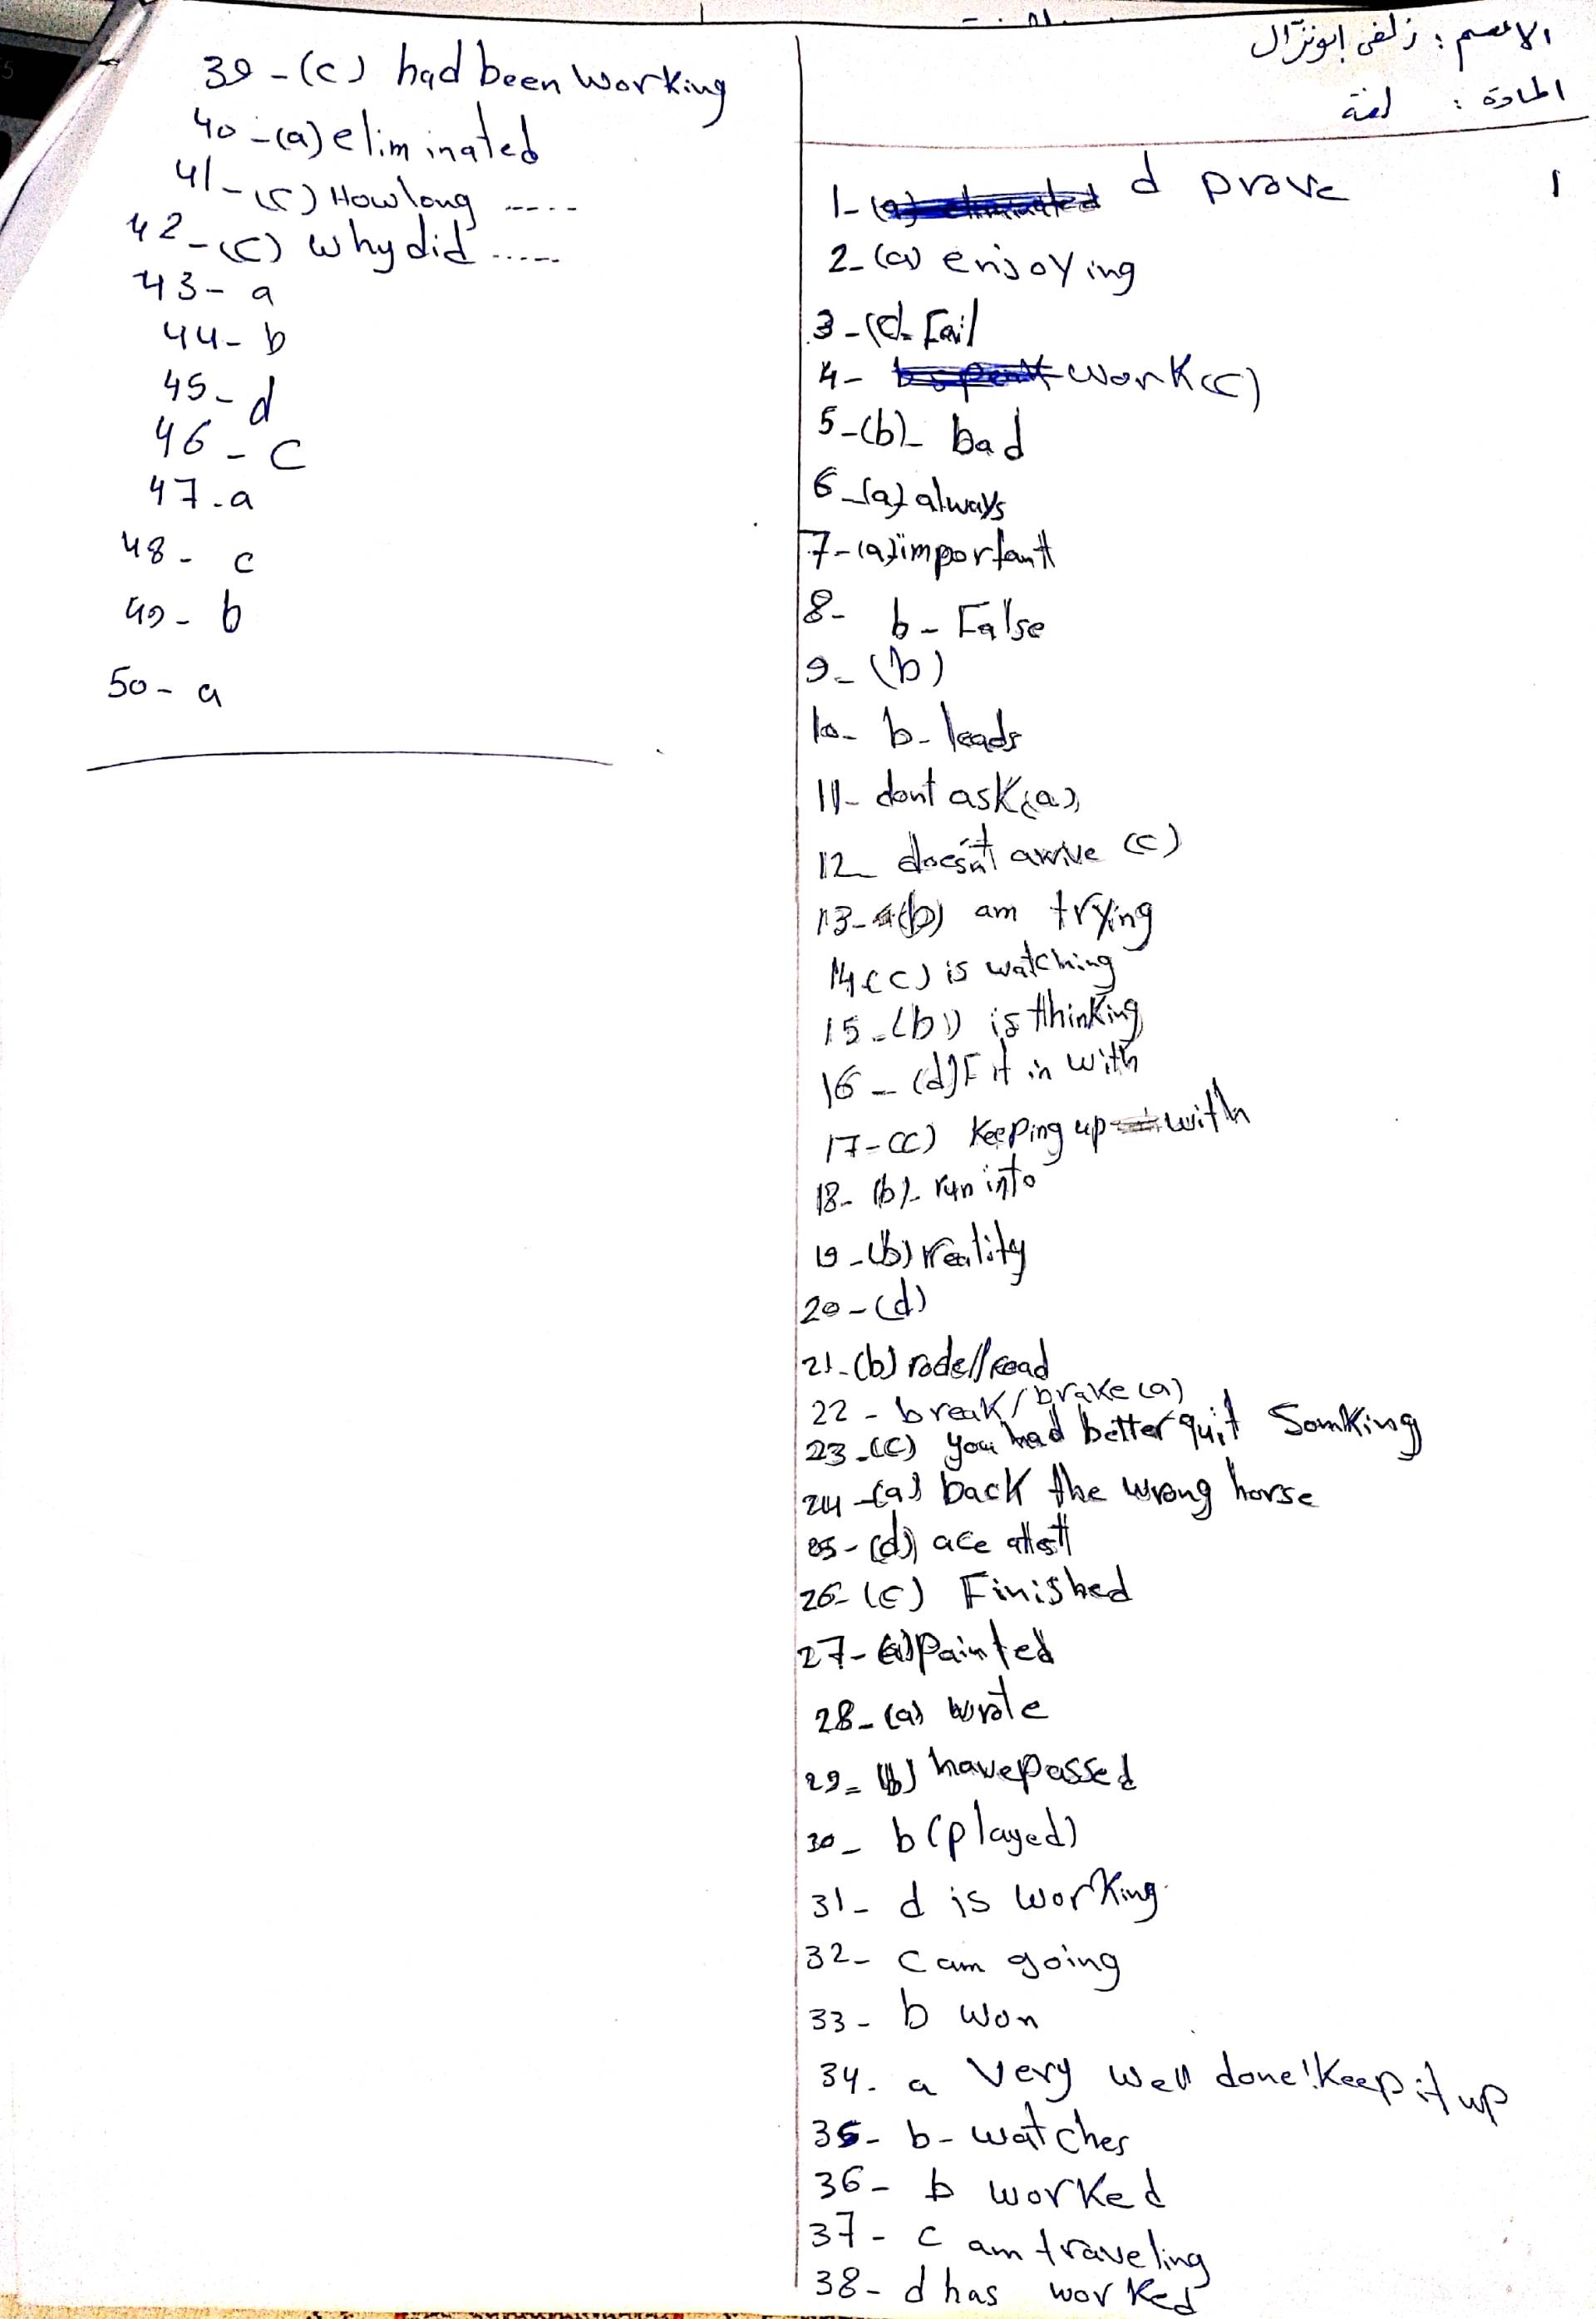 الاسم : زلفى ابونزال
المادة : لغة
1
1- d prove
2- (a) enjoying
3 - (d- Fail
4- work (c)
5-(b)- bad
6-(a) always
7-(a) important
8- b- False
9- (b)
10- b- leads
11- dont ask (a)
12- doesn't arrive (c)
13- (b) am trying
14 (c) is watching
15-(b) is thinking
16 - (d) Fit in with
17-(c) Keeping up with
18- (b)- run into
19 -(b) reality
20-(d)
21-(b) rode//road
22 - break/brake (a)
23-(c) you had better quit Somking
24-(a) back the wrong horse
25-(d) ace
26- (c) Finished
27- Painted
28- (a) wrote
29- (b) have passed
30- b (played)
31- d is working
32- c am going
33- b won
34- a Very well done! Keep it up
35- b- watches
36- b worked
37- c am traveling
38- d has worked
39 -(c) had been working
40 -(a) eliminated
41- How long .....
42-(c) why did ......
43- a
44- b
45- d
46 - c
47-a
48- c
49- b
50- a